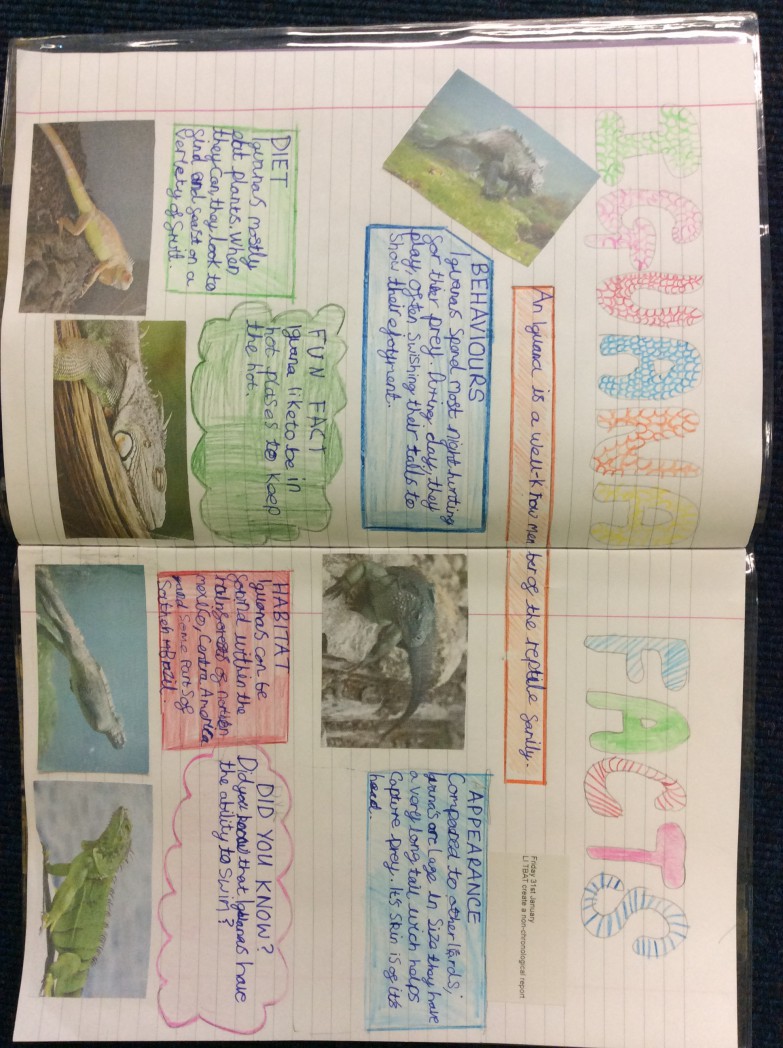 IGUANA FACTS
Friday 31st January
LI TBAT create a non-chronological report
An Iguana is a well-know member of the reptile family.
BEHAVIOURS
Iguanas spend most night hunting
for ther prey. During day, they
play, often swishing their tails to
show their ejotyment.
APPEARANCE
Compared to other lizards;
Iguana's are lage in size they have
a very long tail wich helps
Capture prey. It's skin is of it's
head.
DIET
Iguanas mostly
eat plants. When
they can, they look to
find and feast on a
veriety of fruit.
FUN FACT
Iguana like to be in
hot plases to keep
the hot.
HABITAT
Iguanas can be
found within the
rainforests of northen
mexico, Centra America
and some part s of
Sothen Brazil.
DID YOU KNOW?
Did you know that iguanas have
the ability to swim?